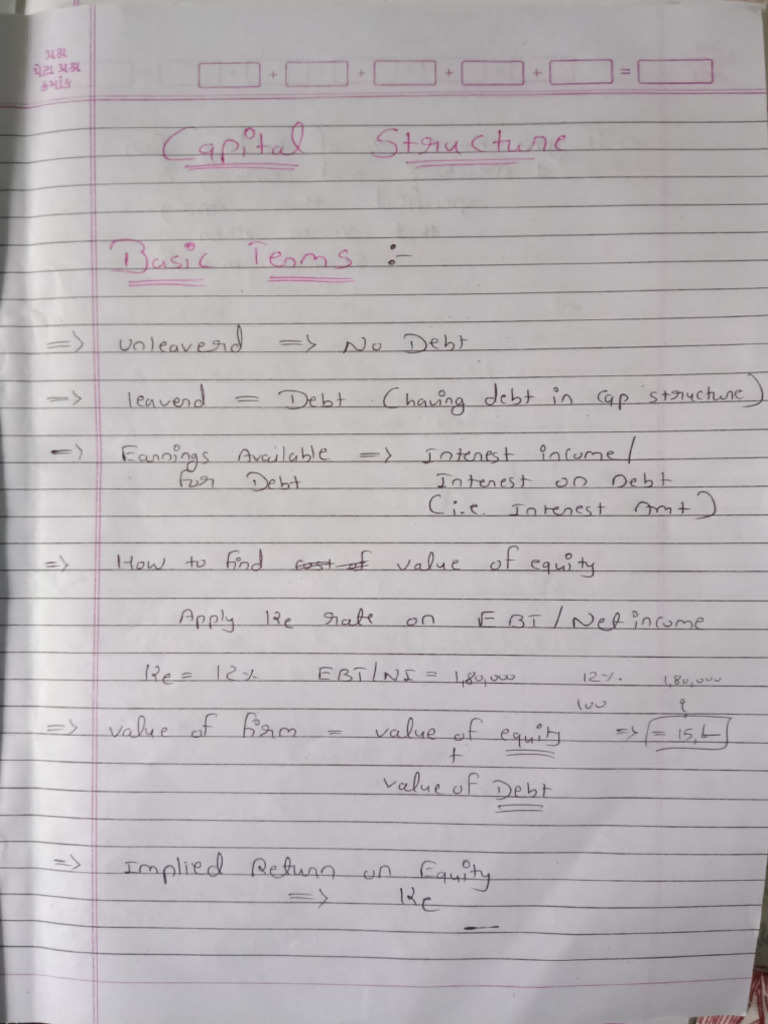 પ્રશ્ન
પેટા પ્રશ્ન
ક્રમાંક
+ + + + =
Capital Structure
Basic Terms :-
=> unleaverd => No Debt
=> leaverd = Debt (having debt in cap structure)
=> Earnings Available => Interest income /
for Debt Interest on Debt
(i.e. Interest Amt)
=> How to find cost of value of equity
Apply Ke rate on EBT / Net income
Ke = 12% EBT/NI = 1,80,000 12% 1,80,000
100 ?
=> value of firm = value of equity => = 15,L
+
value of Debt
=> Implied Return on Equity
=> Ke